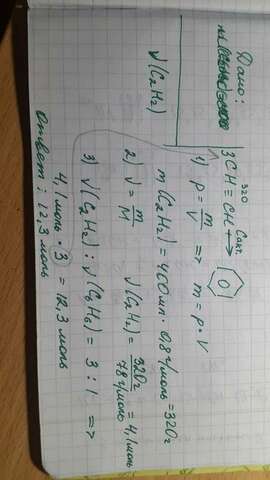 Дано:
ν(C₂H₂)
320
3CH≡CH ⟶ Cакт.
1) ρ = m/V => m = ρ·V
m(C₂H₂) = 400мл · 0,8г/моль = 320г
2) ν = m/M ν(C₂H₂) = 320г/78г/моль = 4,1моль
3) ν(C₂H₂) : ν(C₆H₆) = 3 : 1 =>
4,1моль · 3 = 12,3 моль
Ответ: 12,3 моль